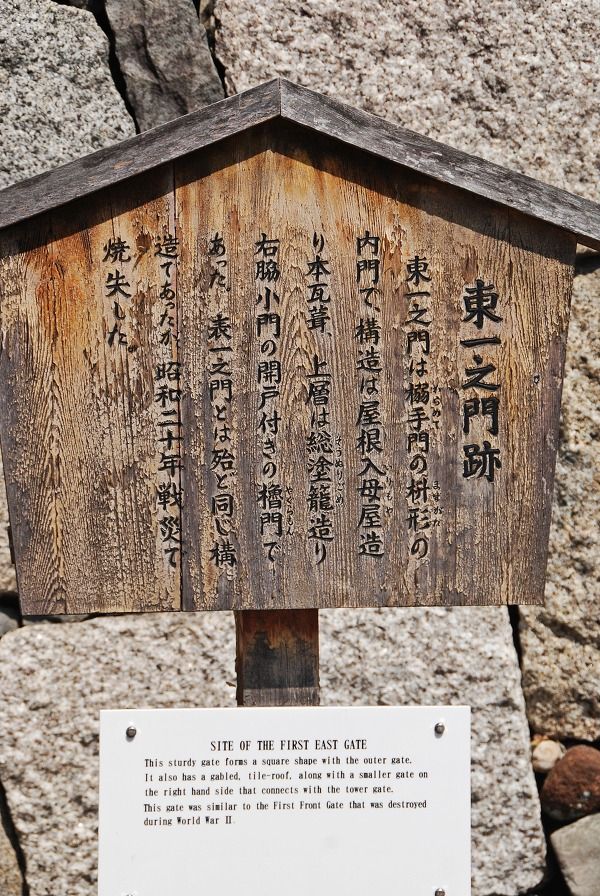 東一之門跡
東一之門は搦手門の枡形の
内門で構造は屋根入母屋造
り本瓦葺、上層は総塗籠造り
右脇小門の開戸付きの櫓門で
あった。表一之門とは殆ど同じ構
造であったが、昭和二十年戦災で
焼失した。
SITE OF THE FIRST EAST GATE
This sturdy gate forms a square shape with the outer gate.
It also has a gabled, tile-roof, along with a smaller gate on
the right hand side that connects with the tower gate.
This gate was similar to the First Front Gate that was destroyed
during World War Ⅱ.